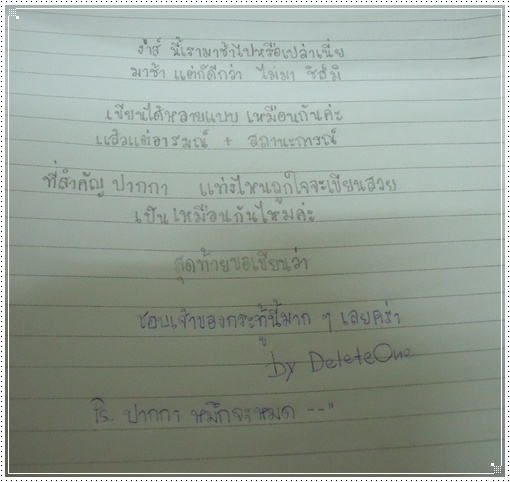 ง่าส์ นี้เรามาช้าไปหรือเปล่าเนี่ย
มาช้า แต่ก็ดีกว่า ไม่มา ชิส์มิ
เขียนได้หลายแบบ เหมือนกันค่ะ
แล้วแต่อารมณ์ + สถานะการณ์
ที่สำคัญ ปากกา แท่งไหนถูกใจจะเขียนสวย
เป็นเหมือนกันไหมค่ะ
สุดท้ายขอเขียนว่า
ชอบเจ้าของกระทู้นี้มาก ๆ เลยคร่า
by DeleteOne
Ps. ปากกา หมึกจะหมด --"